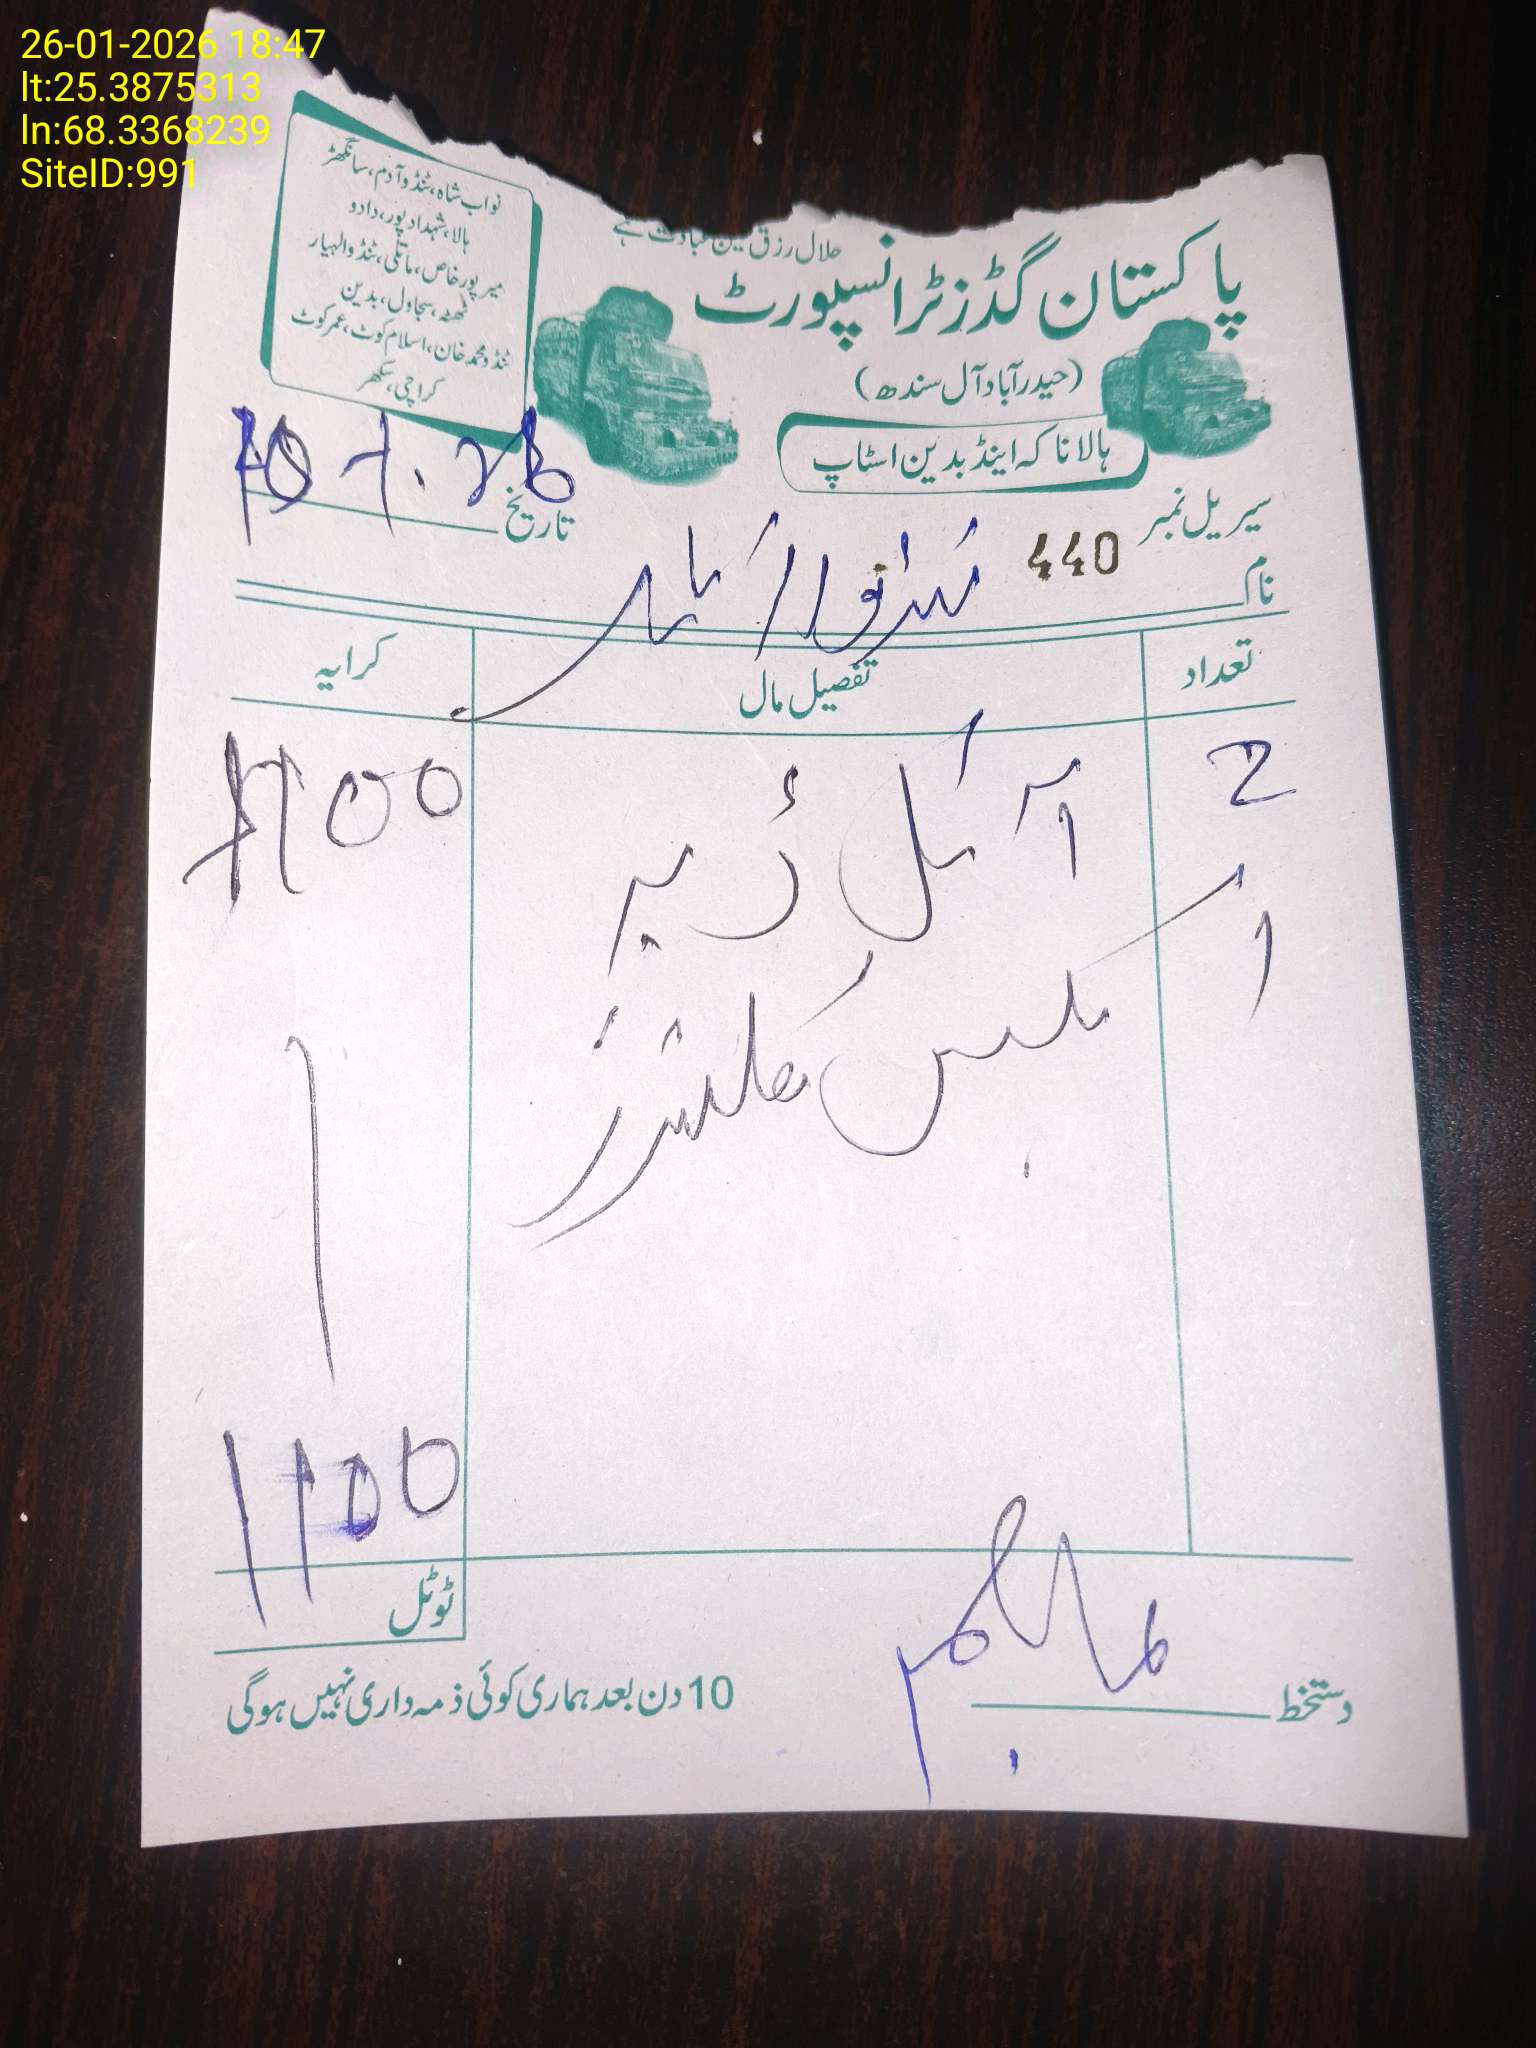 26-01-2026 18:47
lt:25.3875313
ln:68.3368239
SiteID:991
نواب شاہ، ٹنڈوآدم، سانگھڑ
ہالا، شہدادپور، دادو
میرپورخاص، ماتلی، ٹنڈوالہیار
ٹھٹہ، سجاول، بدین
ٹنڈو محمد خان، اسلام کوٹ، عمرکوٹ
کراچی، سکھر
حلال رزق عین عبادت ہے
پاکستان گڈز ٹرانسپورٹ
(حیدرآباد آل سندھ)
ہالا ناکہ اینڈ بدین اسٹاپ
سیریل نمبر 440
تاریخ
نام
تعداد تفصیل مال کرایہ
2 آئل 1100
1
1100
ٹوٹل
دستخط
10 دن بعد ہماری کوئی ذمہ داری نہیں ہوگی